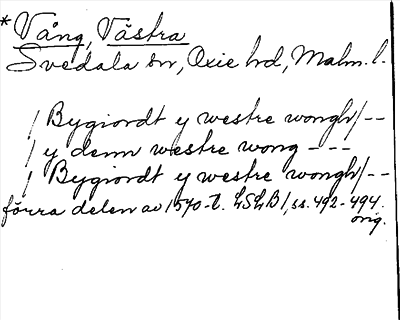 *Vång, Västra
Svedala sn, Oxie hd, Malm. l.
/ Bygiordt y westre wongh/--
/ y denn westre wong ---
/ Bygiordt y westre wongh/--
förra delen av 1570-t. LSLB1, ss. 492-494.
orig.